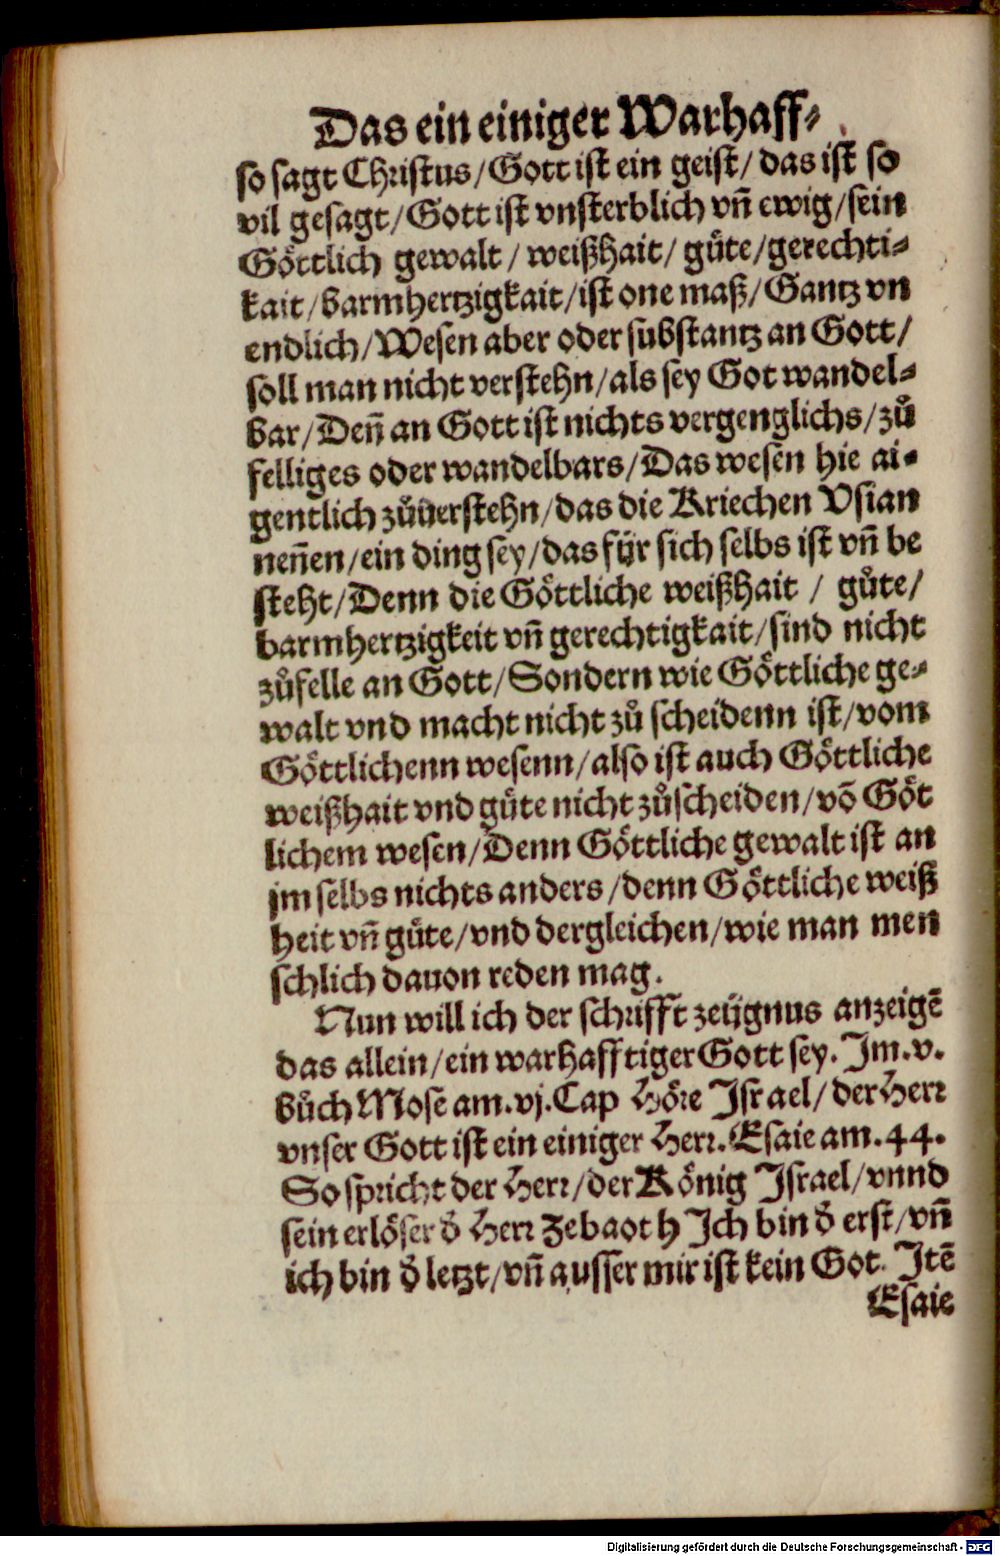 Das ein einiger Warhaff⸗
so sagt Christus/Gott ist ein geist/das ist so
vil gesagt/Gott ist vnsterblich vñ ewig/sein
Göttlich gewalt/weißhait/guͤte/gerechti⸗
kait/barmhertzigkait/ist one maß/Gantz vn
endlich/Wesen aber oder substantz an Gott/
soll man nicht verstehn/als sey Got wandel⸗
bar/Deñ an Gott ist nichts vergenglichs/zů
felliges oder wandelbars/Das wesen hie ai⸗
gentlich zůuerstehn/das die Kriechen Vsian
neñen/ein ding sey/das für sich selbs ist vñ be
steht/Denn die Göttliche weißhait/guͤte/
barmhertzigkeit vñ gerechtigkait/sind nicht
zůfelle an Gott/Sondern wie Göttliche ge⸗
walt vnd macht nicht zů scheidenn ist/vom
Göttlichenn wesenn/also ist auch Göttliche
weißhait vnd guͤte nicht zůscheiden/võ Göt
lichem wesen/Denn Göttliche gewalt ist an
jm selbs nichts anders/denn Göttliche weiß
heit vñ guͤte/vnd dergleichen/wie man men
schlich dauon reden mag.
Nun will ich der schrifft zeügnus anzeigẽ
das allein/ein warhafftiger Gott sey. Jm.v.
bůch Mose am.vj.Cap Höre Jsrael/der Herr
vnser Gott ist ein einiger Herr.Esaie am.44.
So spricht der Herr/der König Jsrael/vnnd
sein erlöser d̕ Herr Zebaoth Jch bin d̕ erst/vñ
ich bin d̕ letzt/vñ ausser mir ist kein Got. Jtẽ
Esaie
Digitalisierung gefördert durch die Deutsche Forschungsgemeinschaft - DFG